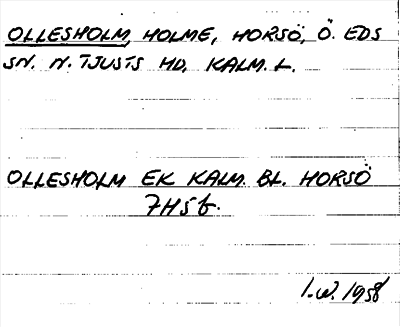 OLLESHOLM, HOLME, HORSÖ, Ö. EDS
SN. N. TJUSTS HD, KALM. L.
OLLESHOLM EK KALM. BL. HORSÖ
7H5b.
I.W. 1958